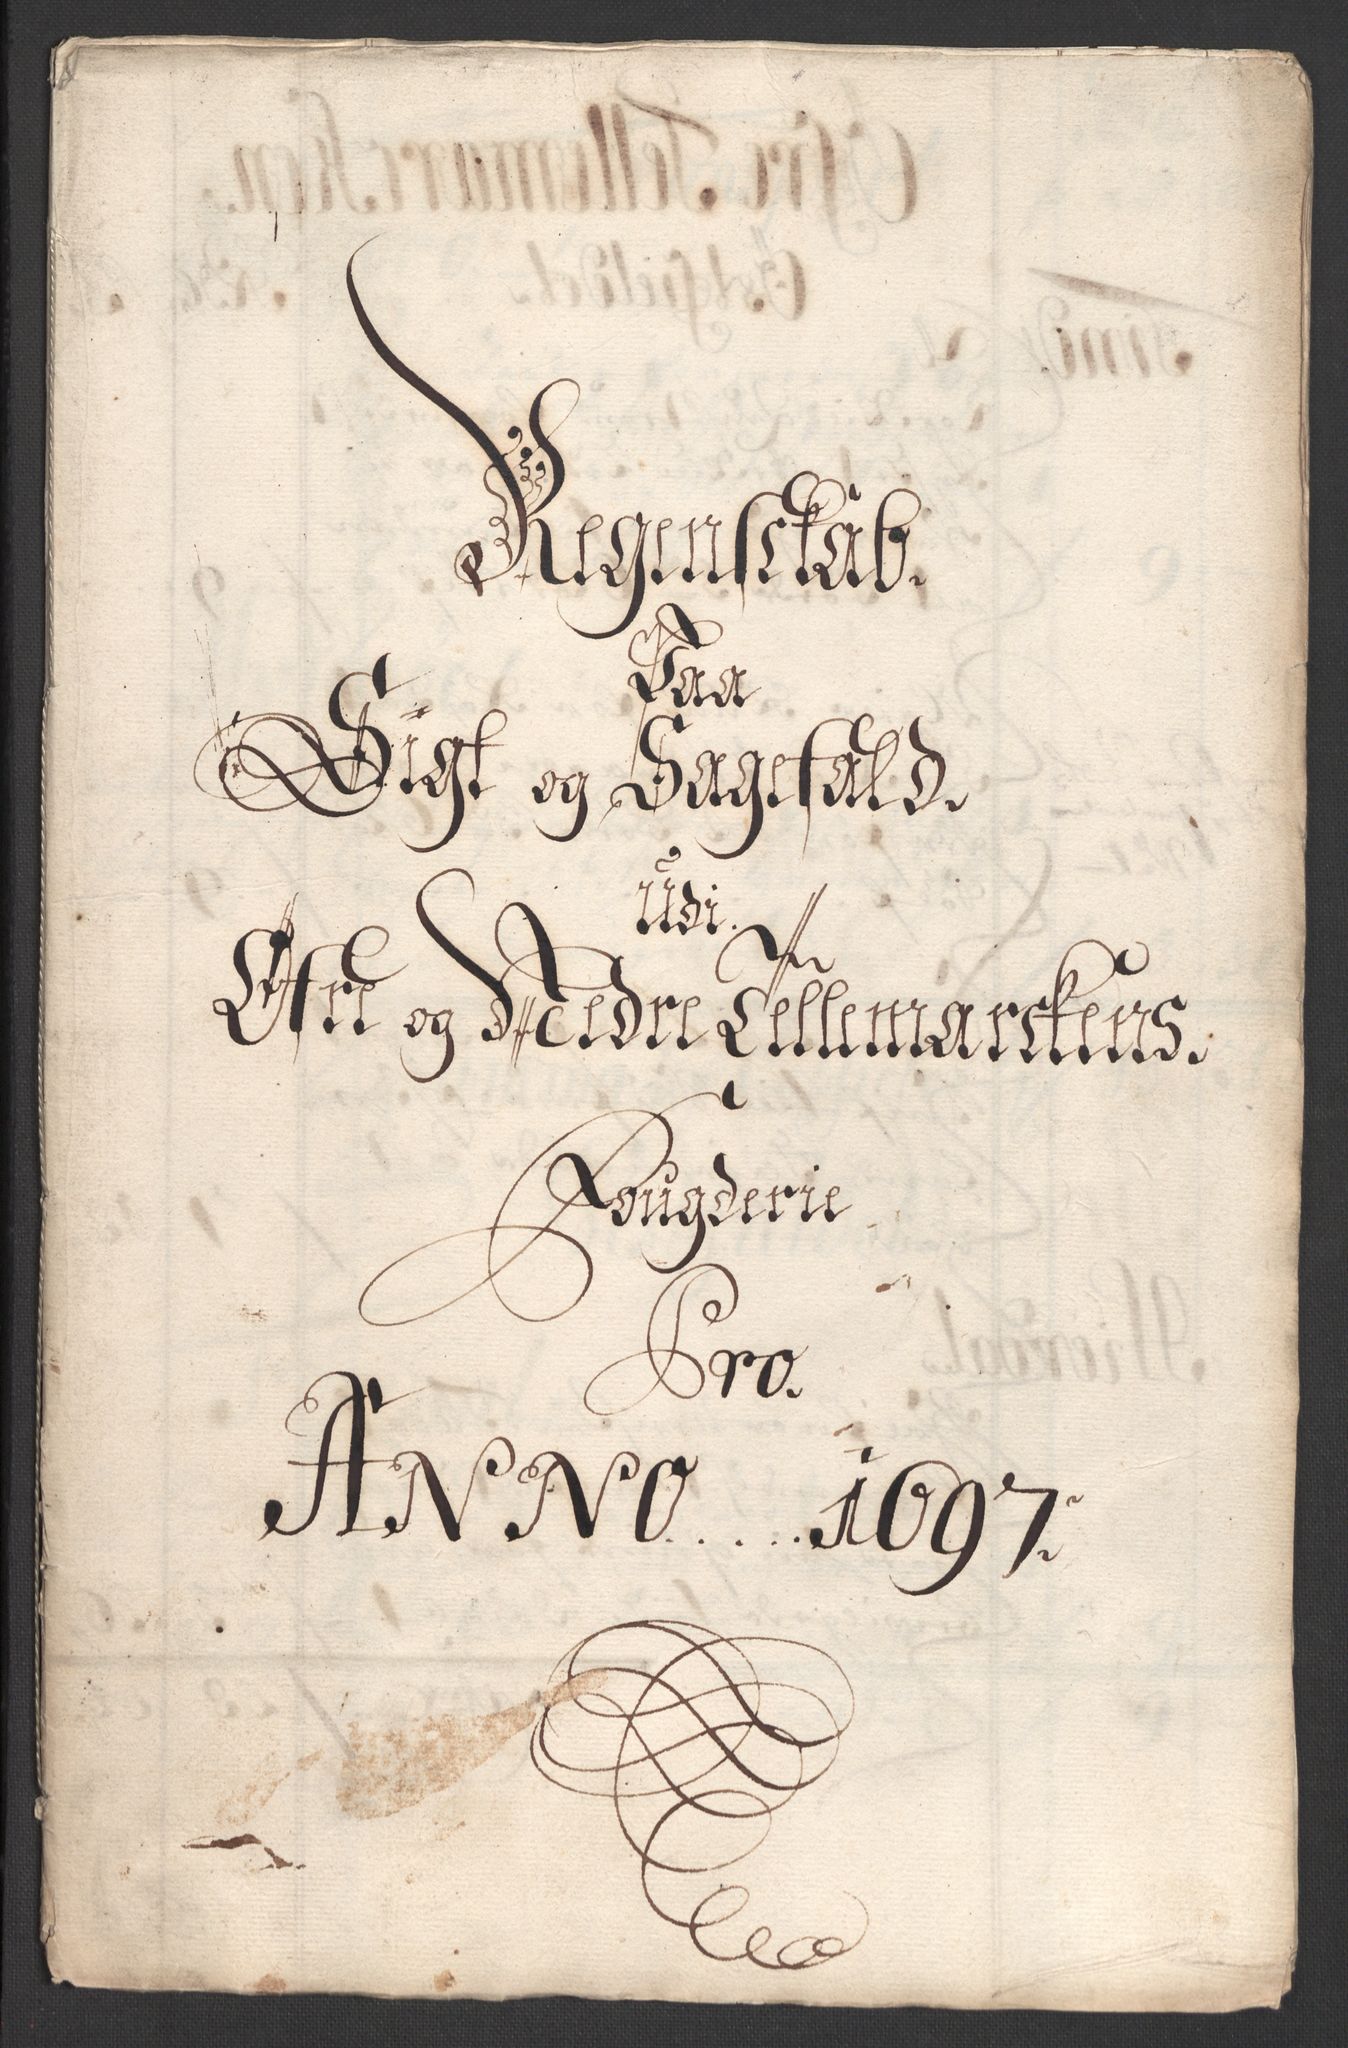 Regenskab.
Paa
Sigt og Sagefald.
Udi.
Øfre og Nedre Tellemarckens.
Fougderie
Pro.
ANNO.....1697.